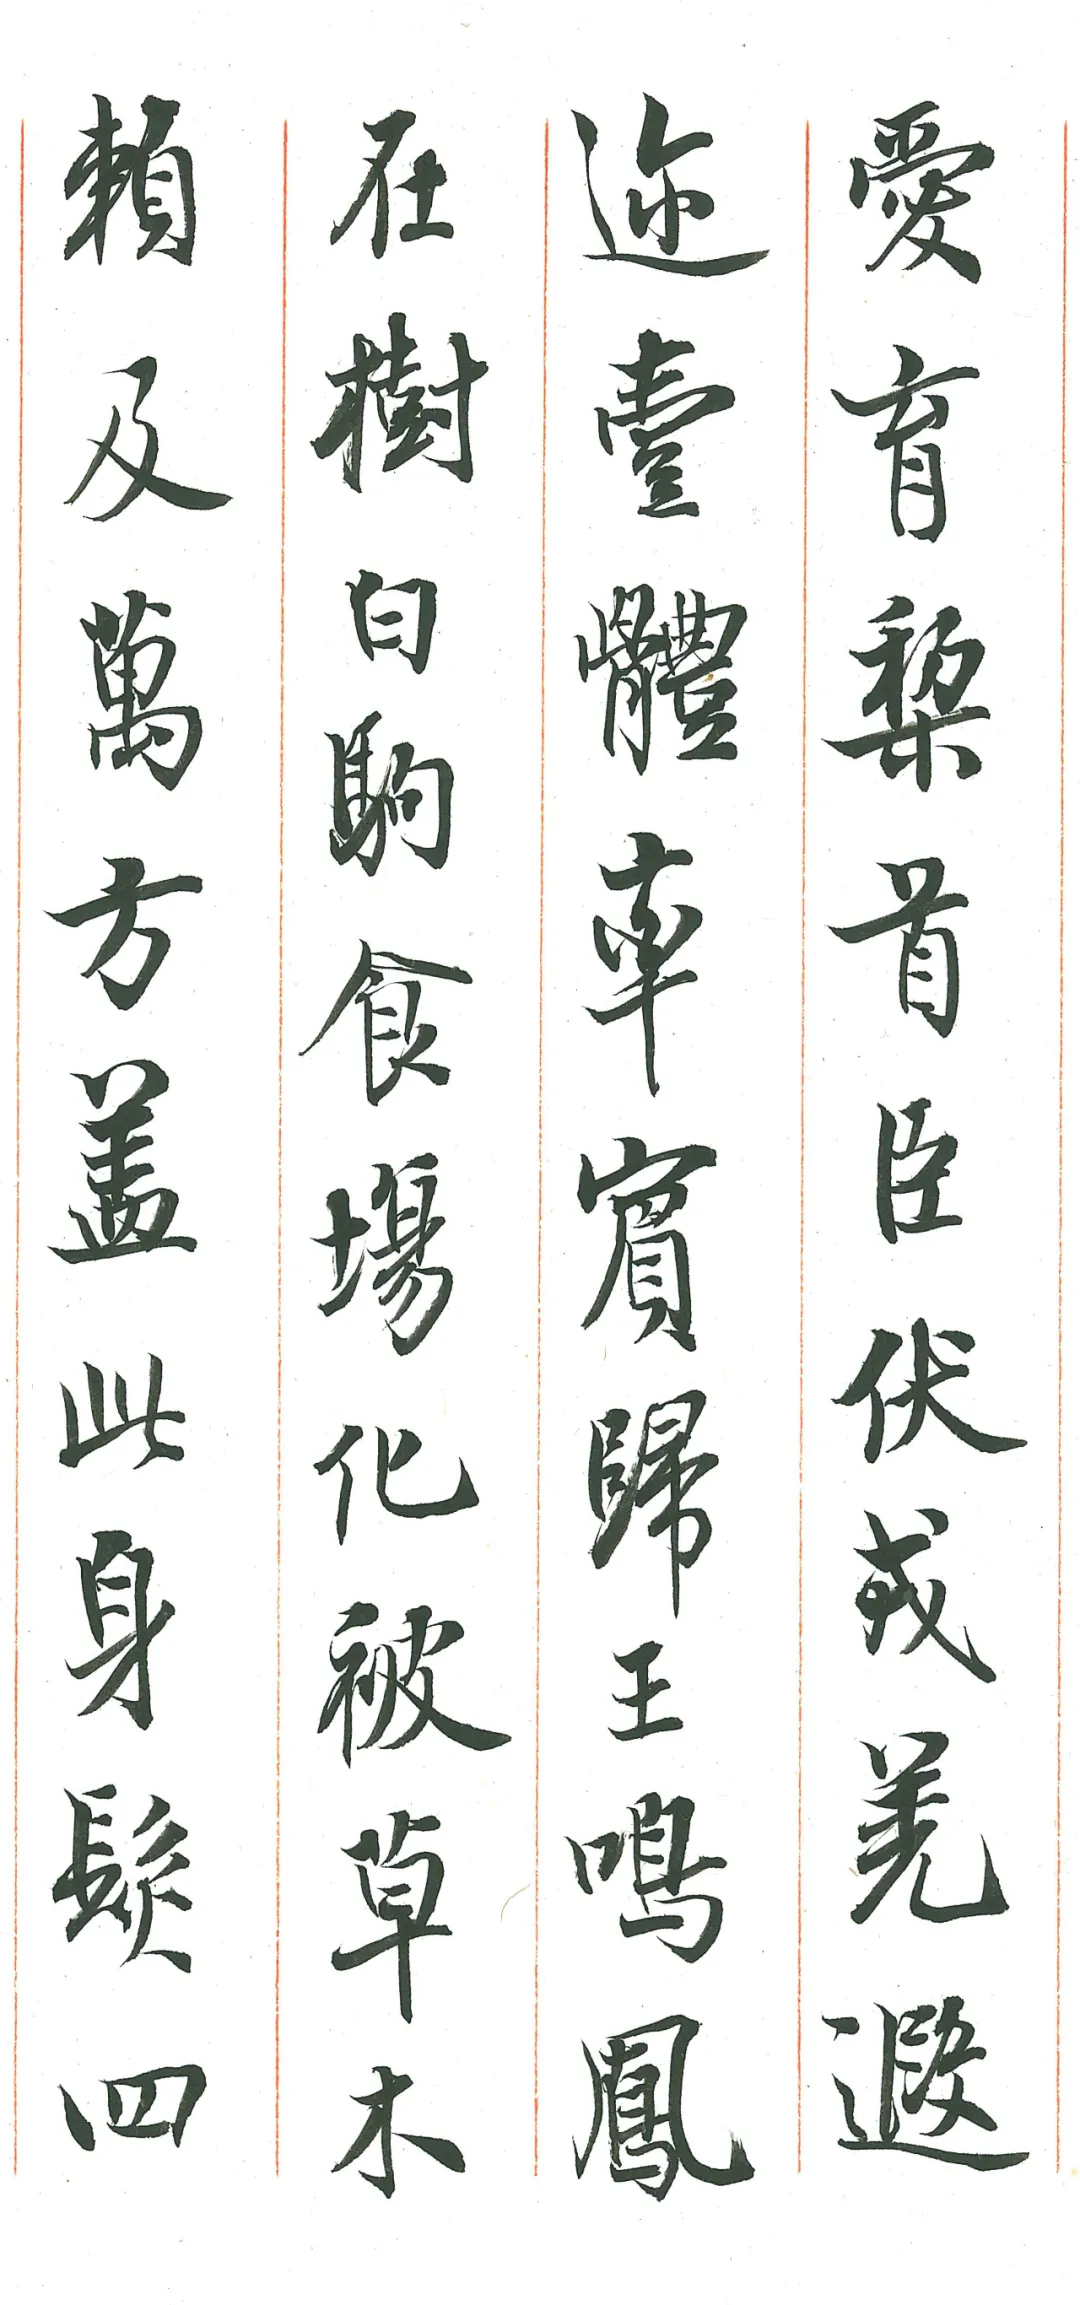 愛育黎首臣伏戎羌遐
迩壹體率賓歸王鳴鳳
在樹白駒食場化被草木
賴及萬方蓋此身髮四